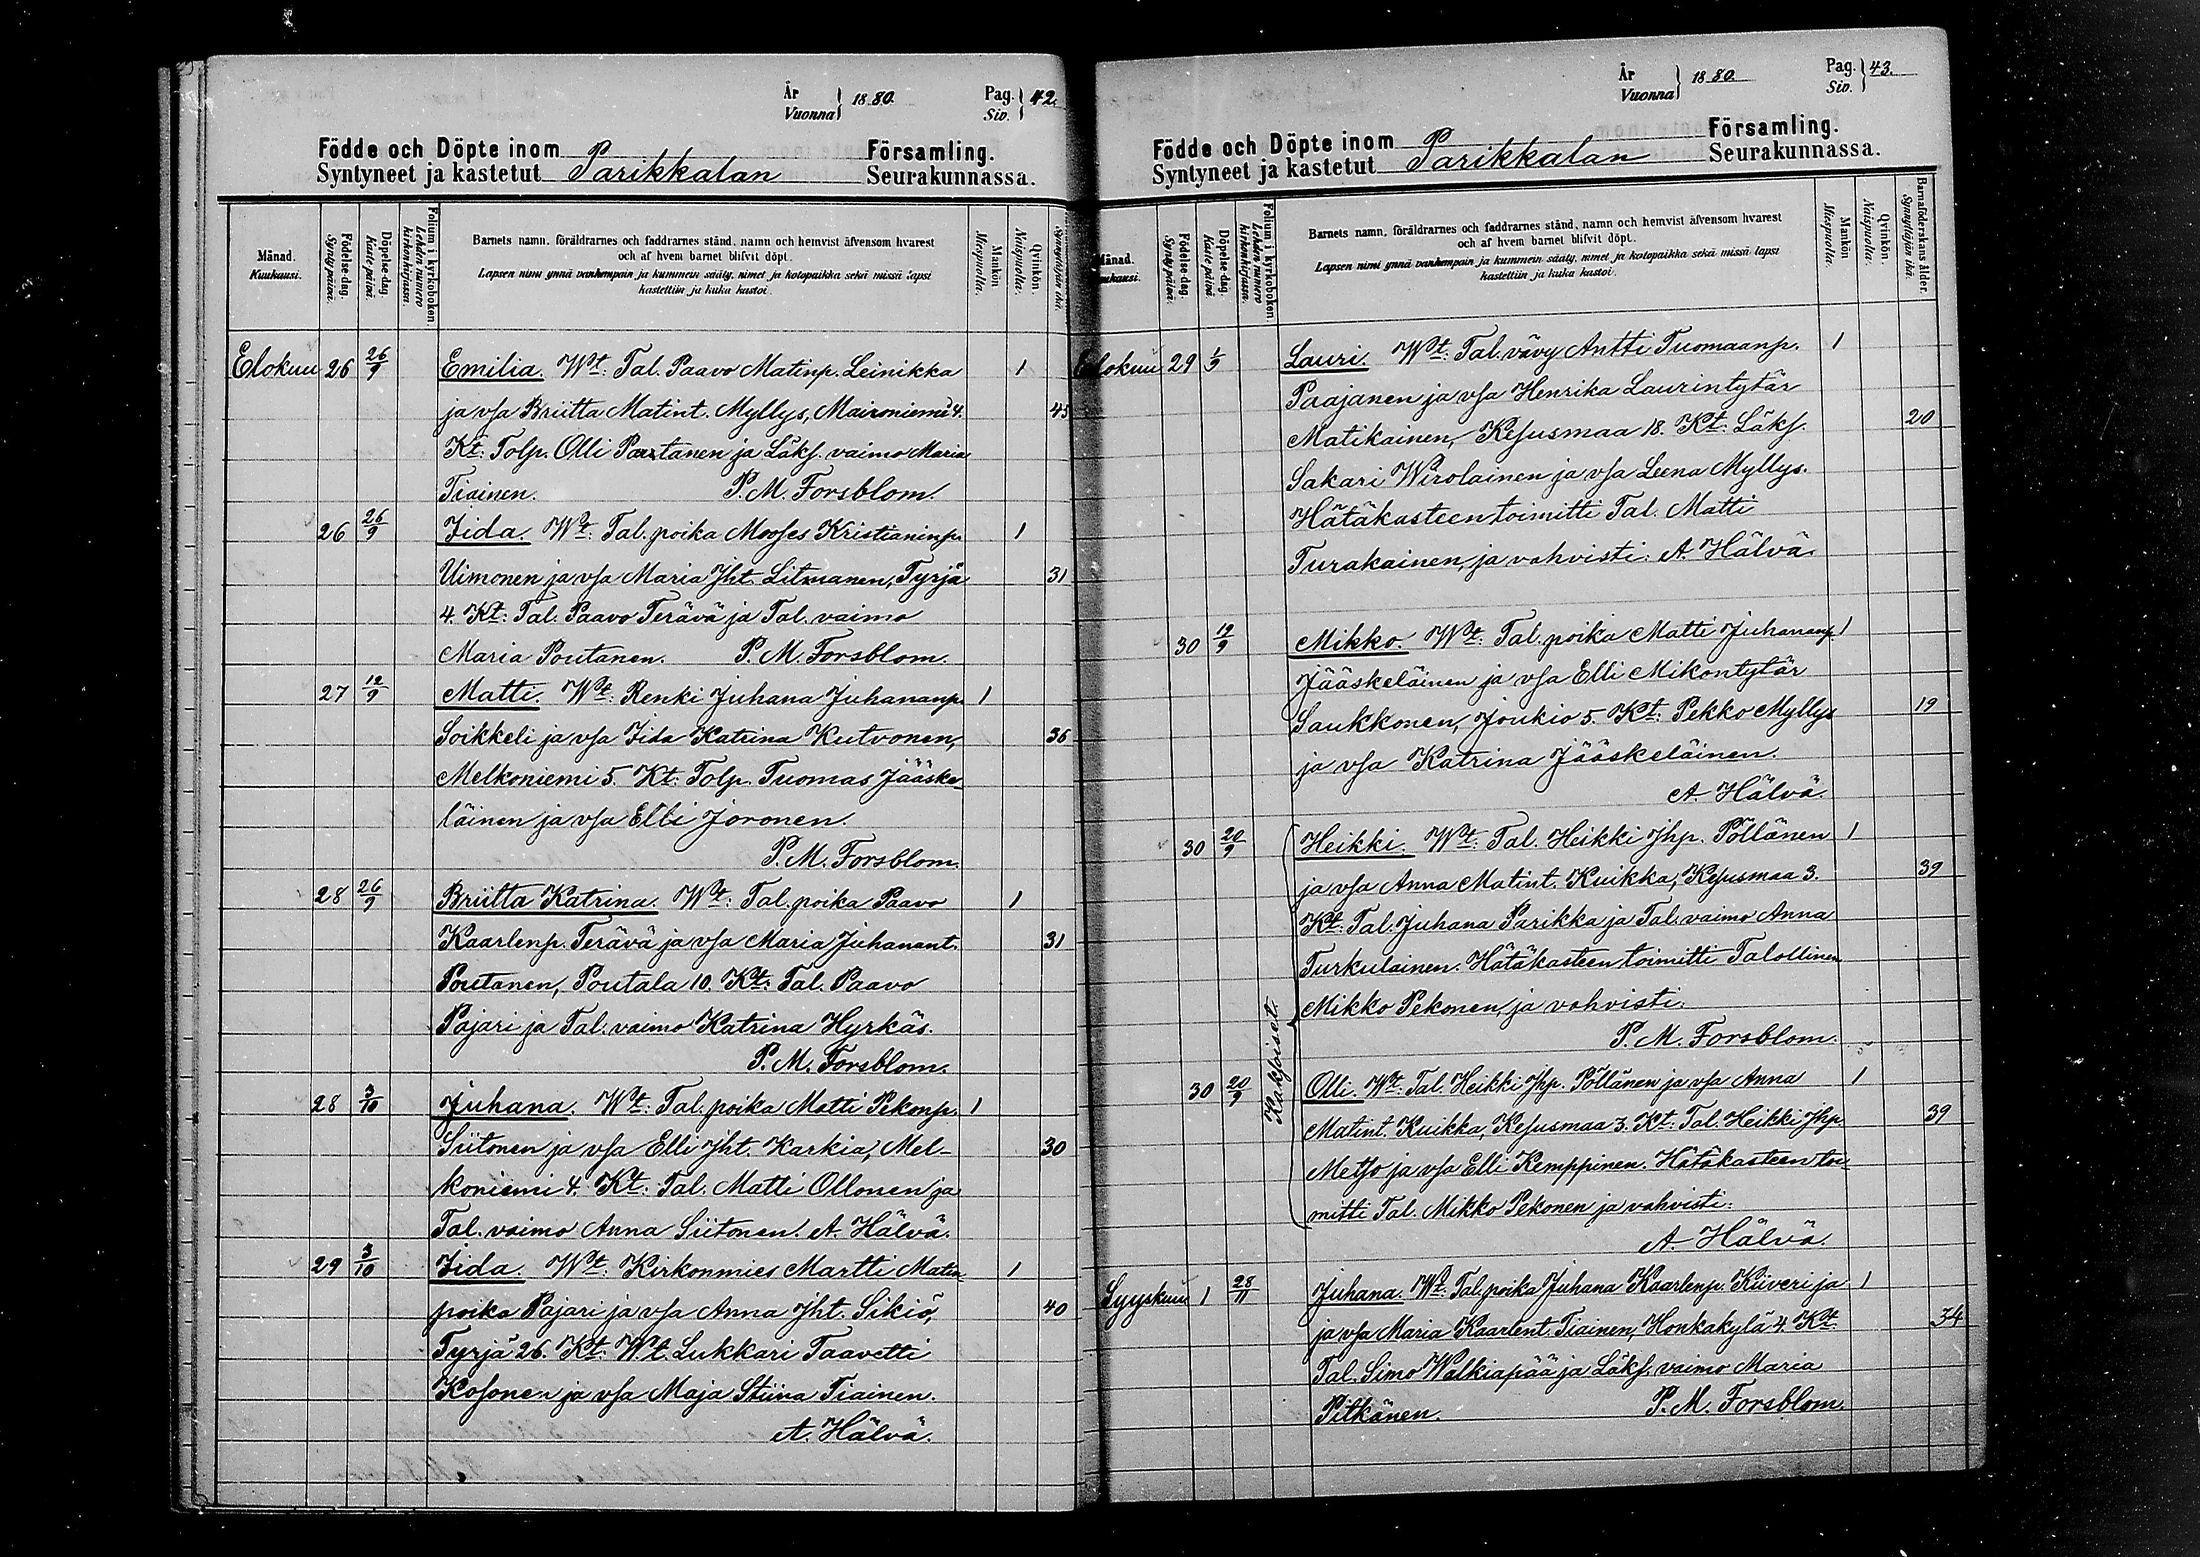 År
Vuonna } 1880. Pag. Siv. } 42.
Födde och Döpte inom Parikkalan Församling.
Syntyneet ja kastetut Seurakunnassa.
Månad. Kuukausi.
Födelse-dag. Synty päivä.
Döpelse-dag. Kaste päivä.
Folium i kyrkoboken. Lehden numero kirkonkirjassa.
Barnets namn, föräldrarnes och faddrarnes stånd, namn och hemvist äfvensom hvarest
och af hvem barnet blifvit döpt.
Lapsen nimi ynnä vanhempain ja kummein sääty, nimet ja kotopaikka sekä missä lapsi
kastettiin ja kuka kastoi.
Mankön. Miespuolia.
Qvinkön. Naispuolia.
Elokuu 26 26/9 Emilia. Wt: Tal. Paavo Matinp. Leinikka 1
ja vsa Briitta Matint. Myllys, Maironiemi 4. 45
Kt: Tolp. Olli Partanen ja Läks. vaimo Maria
Tiainen. P. M. Forsblom.
26 26/9 Iida. Wt: Tal. poika Mooses Kristianinp. 1
Uimonen ja vsa Maria Jht. Litmanen, Tyrjä 31
4. Kt: Tal. Paavo Terävä ja Tal. vaimo
Maria Poutanen. P. M. Forsblom.
27 12/9 Matti. Wt: Renki Juhana Juhananp. 1
Soikkeli ja vsa Iida Katrina Kutvonen, 36
Melkoniemi 5. Kt: Tolp. Tuomas Jääske-
läinen ja vsa Elli Joronen.
P. M. Forsblom.
28 26/9 Briitta Katrina. Wt: Tal. poika Paavo 1
Kaarlenp. Terävä ja vsa Maria Juhanant. 31
Poutanen, Poutala 10. Kt: Tal. Paavo
Pajari ja Tal. vaimo Katrina Hyrkäs.
P. M. Forsblom.
28 3/10 Juhana. Wt: Tal. poika Matti Pekonp. 1
Siitonen ja vsa Elli Jht. Karkia, Mel- 30
koniemi 4. Kt: Tal. Matti Ollonen ja
Tal. vaimo Anna Siitonen. A. Hälvä.
29 3/10 Iida. Wt: Kirkonmies Martti Matin- 1
poika Pajari ja vsa Anna Jht. Sikiö, 40
Tyrjä 26. Kt: Wt. Lukkari Taavetti
Kosonen ja vsa Maja Stiina Tiainen.
A. Hälvä.
År
Vuonna } 1880. Pag. Siv. } 43.
Födde och Döpte inom Parikkalan Församling.
Syntyneet ja kastetut Seurakunnassa.
Månad.
Födelse-dag. Synty päivä.
Döpelse-dag. Kaste päivä.
Folium i kyrkoboken. Lehden numero kirkonkirjassa.
Barnets namn, föräldrarnes och faddrarnes stånd, namn och hemvist äfvensom hvarest
och af hvem barnet blifvit döpt.
Lapsen nimi ynnä vanhempain ja kummein sääty, nimet ja kotopaikka sekä missä lapsi
kastettiin ja kuka kastoi.
Mankön. Miespuolia.
Qvinkön. Naispuolia.
Barnaföderskans ålder. Synnyttäjän ikä.
Elokuu 29 1/9 Lauri. Wt: Tal. vävy Antti Tuomaanp. 1
Paajanen ja vsa Henrika Laurintytär
Matikainen, Kesusmaa 18. Kt: Läks. 20
Sakari Wirolainen ja vsa Leena Myllys.
Hätäkasteen toimitti Tal. Matti
Turakainen, ja vahvisti: A. Hälvä.
30 19/9 Mikko. Wt: Tal. poika Matti Juhananp. 1
Jääskeläinen ja vsa Elli Mikontytär
Saukkonen, Joukio 5. Kt: Pekko Myllys 19
ja vsa Katrina Jääskeläinen.
A. Hälvä.
Kaksoiset.
30 20/9 Heikki. Wt: Tal. Heikki Jhp. Pöllänen 1
ja vsa Anna Matint. Kuikka, Kesusmaa 3. 39
Kt: Tal. Juhana Parikka ja Tal. vaimo Anna
Turkulainen. Hätäkasteen toimitti Talollinen
Mikko Pekonen, ja vahvisti:
P. M. Forsblom.
30 20/9 Olli. Wt: Tal. Heikki Jhp. Pöllänen ja vsa Anna 1
Matint. Kuikka, Kesusmaa 3. Kt: Tal. Heikki Jhp. 39
Metso ja vsa Elli Kemppinen. Hätäkasteen toi-
mitti Tal. Mikko Pekonen ja vahvisti:
A. Hälvä.
Syyskuu 1 28/11 Juhana. Wt: Tal. poika Juhana Kaarlenp. Kiiveri ja 1
ja vsa Maria Kaarlent. Tiainen, Honkakylä 4. Kt: 34
Tal. Simo Walkiapää ja Läks. vaimo Maria
Pitkänen. P. M. Forsblom.